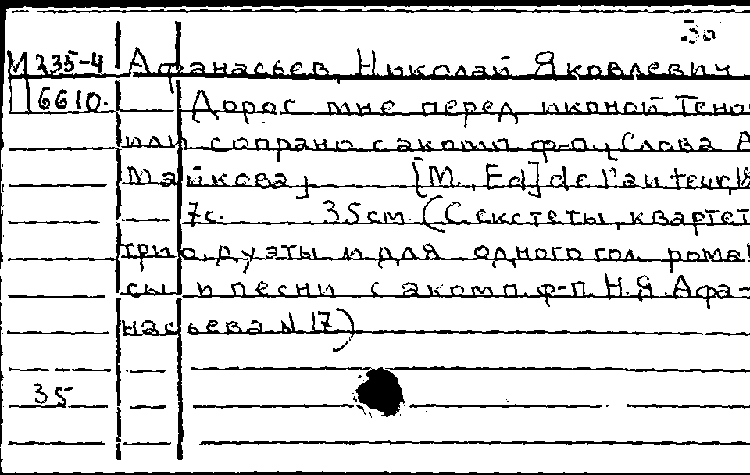 30
М 235-4 Афанасьев, Николай Яковлевич
П 6610. Дорог мне перед иконой Тено
или сопрано с акомп. ф-п. Слова А
Майкова] [M., Ed] de l'auteur,
7с. 35см (Секстеты, квартет
трио, дуэты и для одного гол. рома
сы и песни с акомп. ф-п. Н.Я. Афа-
насьева N 17)
35